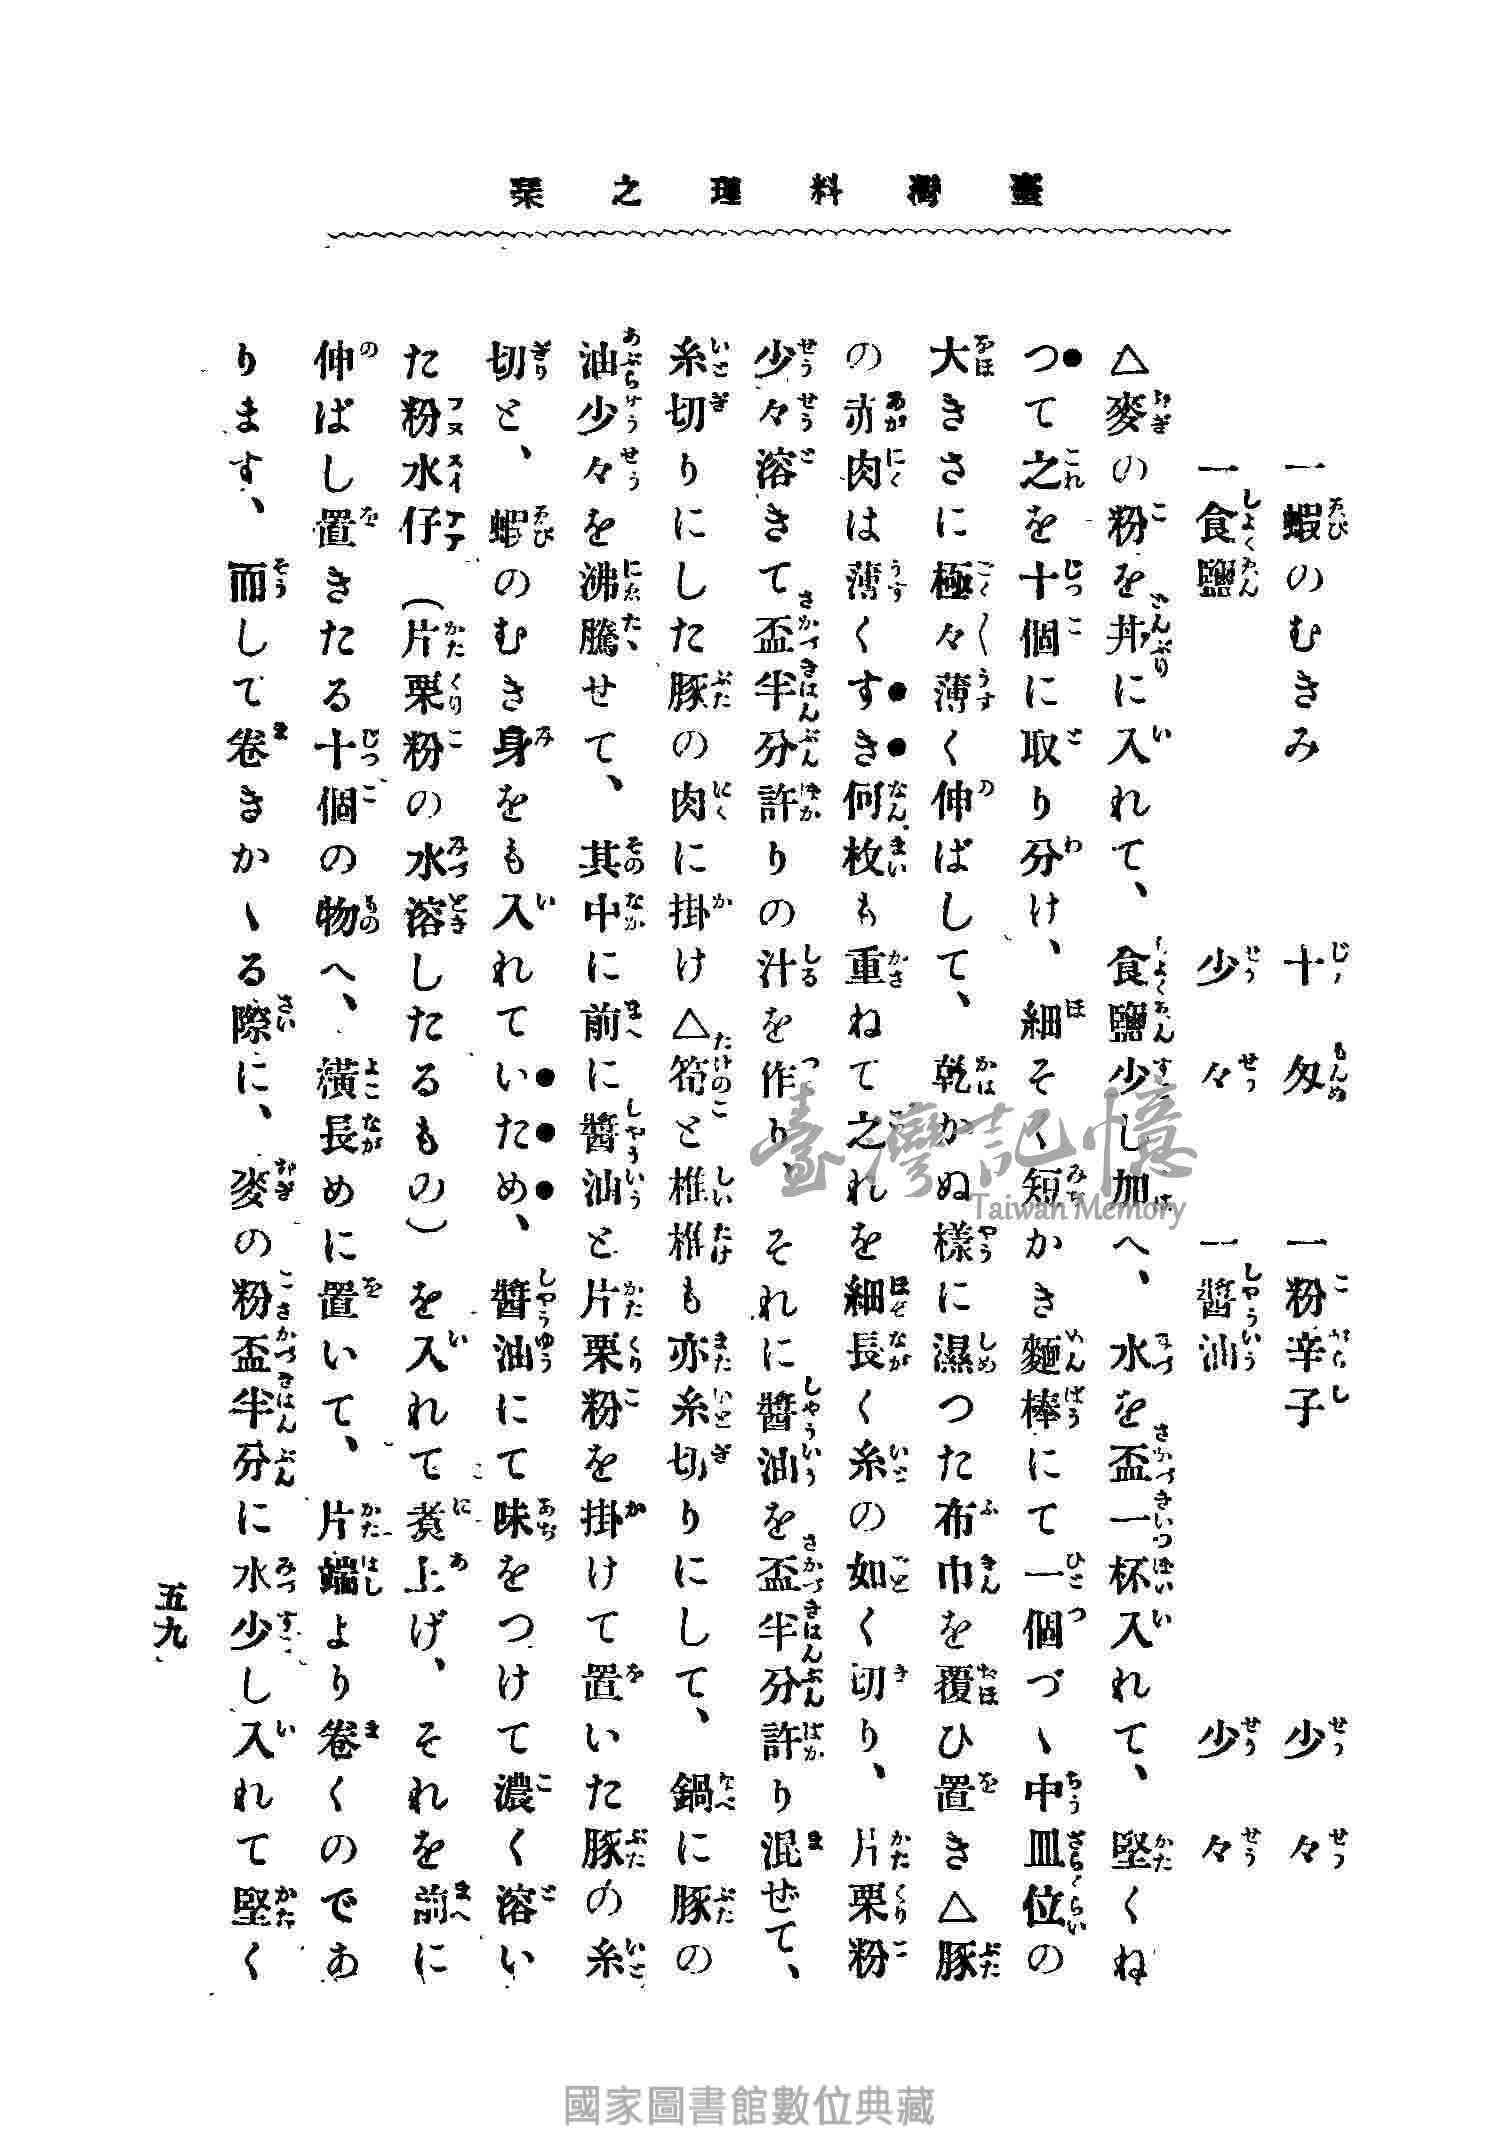 臺灣料理之栞
一蝦のむきみ　十匁　一粉辛子　少々
一食鹽　少々　一醬油　少々
△麥の粉を丼に入れて、食鹽少し加へ、水を盃一杯入れて、堅くね
つて之を十個に取り分け、細そく短かき麵棒にて一個づゝ中皿位の
大きさに極々薄く伸ばして、乾かぬ樣に濕つた布巾を覆ひ置き△豚
の赤肉は薄くすき何枚も重ねて之れを細長く糸の如く切り、片栗粉
少々溶きて盃半分許りの汁を作り、それに醬油を盃半分許り混ぜて、
糸切りにした豚の肉に掛け△筍と椎椎も亦糸切りにして、鍋に豚の
油少々を沸騰せて、其中に前に醬油と片栗粉を掛けて置いた豚の糸
切と、蝦のむき身をも入れていため、醬油にて味をつけて濃く溶い
た粉水仔（片栗粉の水溶したるもの）を入れて煑上げ、それを前に
伸ばし置きたる十個の物へ、橫長めに置いて、片端より卷くのであ
ります、而して卷きかゝる際に、麥の粉盃半分に水少し入れて堅く
五九
臺灣記憶
Taiwan Memory
國家圖書館數位典藏